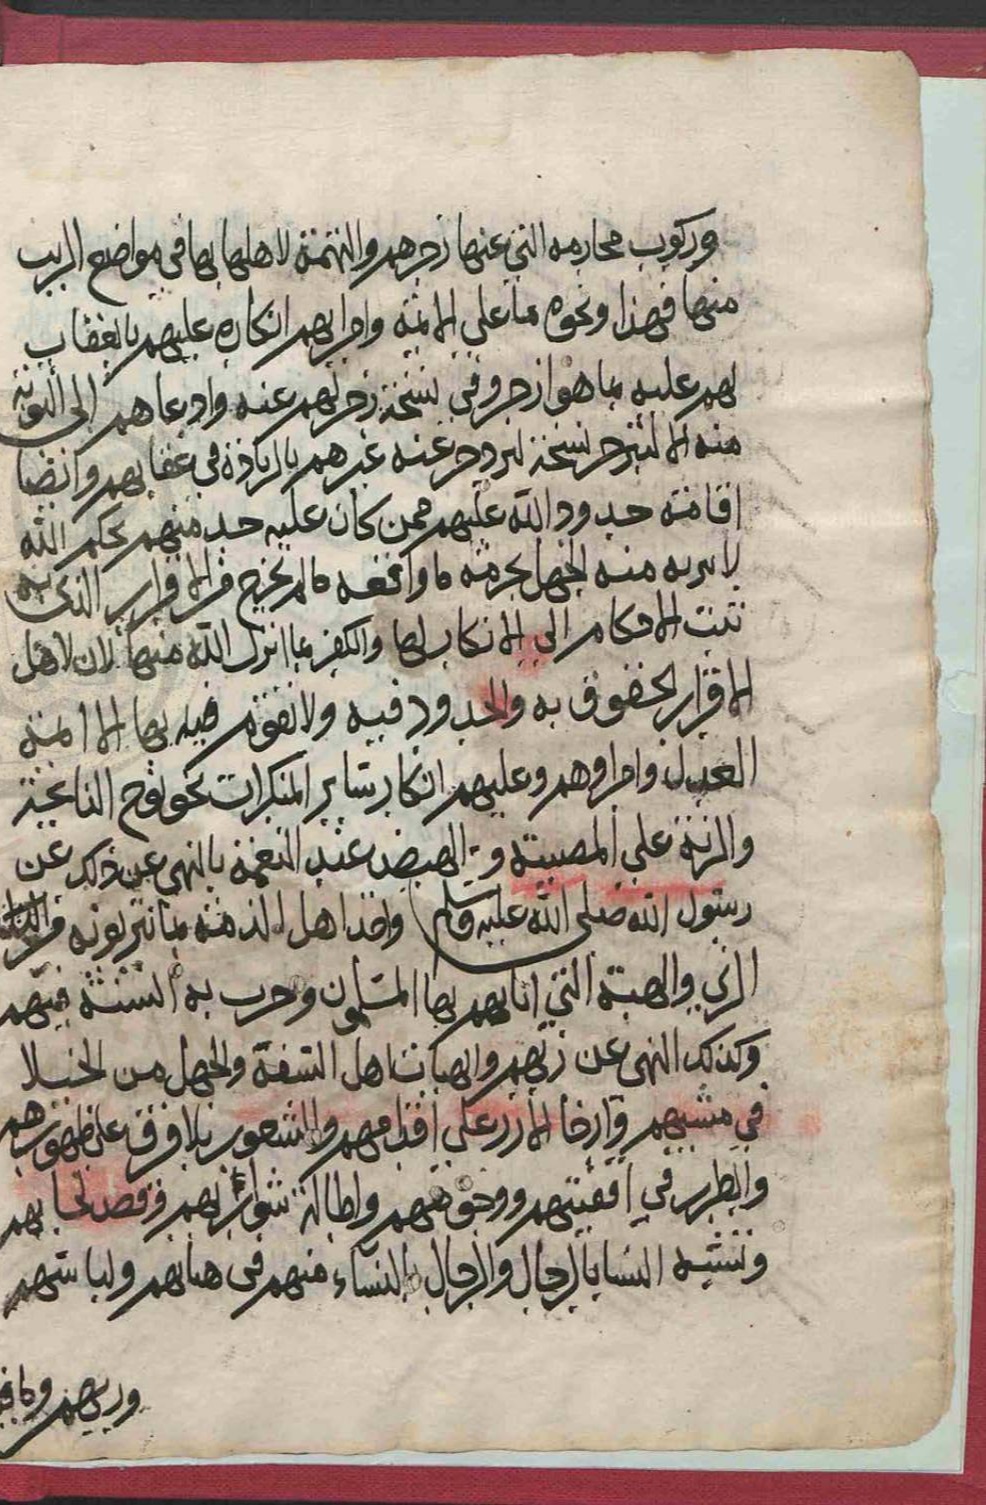 وركوب محارمه التي عنها زجرهم والتهمة لاهلها بها في مواضع الريب
منها فهذا ونحوه مما على الائمة وامرايهم انكاره عليهم بالعقاب
لهم عليه بما هو ازجر وفي نسخة زجر لهم عنه وادعا هم الى التوبة
منه الا لينزجر نسخة ليزدجر عنه غيرهم بالزيادة في عقابهم وايضا
اقامة حدود الله عليهم ممن كان عليه حد منهم بحكم الله
لا يبريه منه الجهل بحرمة ما واقعه ما لم يخرج من الاقرار الذي به
تثبت الاحكام الى الانكار لها والكفر بما انزل الله منها لان لاهل
الاقرار الحقوق به والحدود فيه ولا تقوم فيه بها الا ائمة
العدل وامراوهم وعليهم انكار ساير المنكرات نحو نوح النايحة
والرنة على المصيبة و عند النغمة بالنهي عن ذلك عن
رسول الله صلى الله عليه وسلم واخذ اهل الذمة بما يتزيونه من
الزي والهيئة التي ابانهم بها المسلمون وجرت به السنة فيهم
وكذلك النهي عن زيهم والهيات اهل السفه والجهل من الخيلا
في مشيهم وارخا الازر على اقدامهم والشعور بلا فرق على ظهورهم
والطرر في اقفيتهم ووجوههم واطالة شواربهم وقص لحاهم
وتشبه النسا بالرجال والرجال بالنساء منهم في هياتهم ولباسهم
وريهم وما